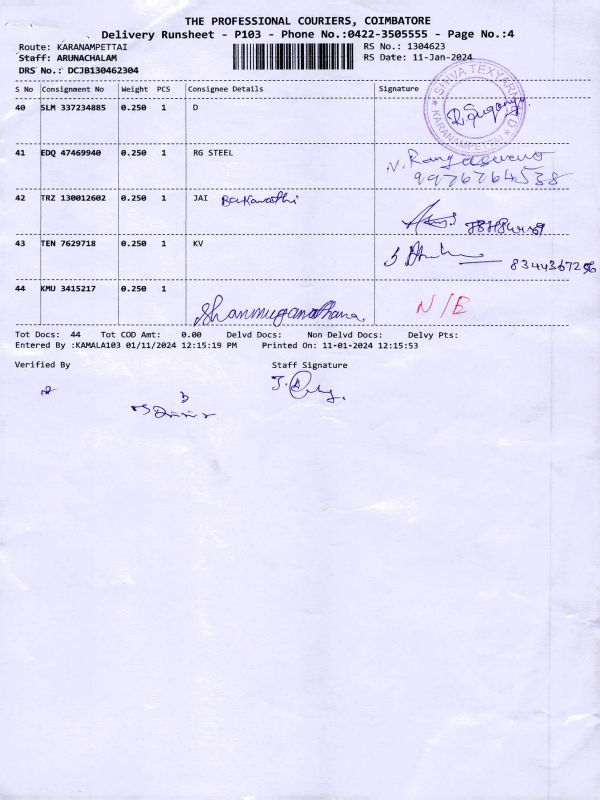 THE PROFESSIONAL COURIERS, COIMBATORE
Delivery Runsheet - P103 - Phone No.:0422-3505555 - Page No.:4
Route: KARANAMPETTAI RS No.: 1304623
Staff: ARUNACHALAM RS Date: 11-Jan-2024
DRS No.: DCJB130462304
S No Consignment No Weight PCS Consignee Details Signature
40 SLM 337234885 0.250 1 D
KARANAMPETTAI
41 EDQ 47469940 0.250 1 RG STEEL
9976764538
42 TRZ 130012602 0.250 1 JAI
43 TEN 7629718 0.250 1 KV
8344367256
44 KMU 3415217 0.250 1
Shanmuganathana. N/E
Tot Docs: 44 Tot COD Amt: 0.00 Delvd Docs: Non Delvd Docs: Delvy Pts:
Entered By :KAMALA103 01/11/2024 12:15:19 PM Printed On: 11-01-2024 12:15:53
Verified By Staff Signature